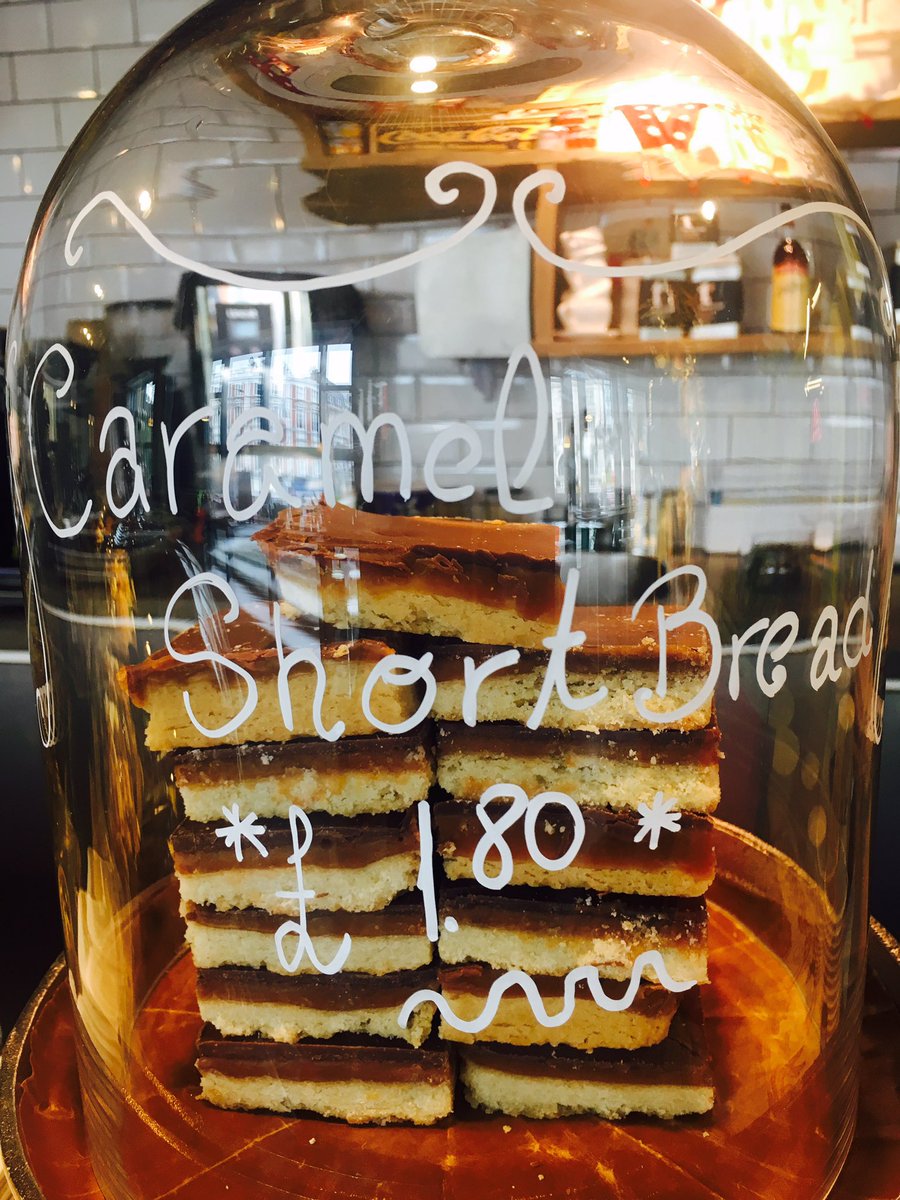 Caramel
Short Bread
* £1.80 *